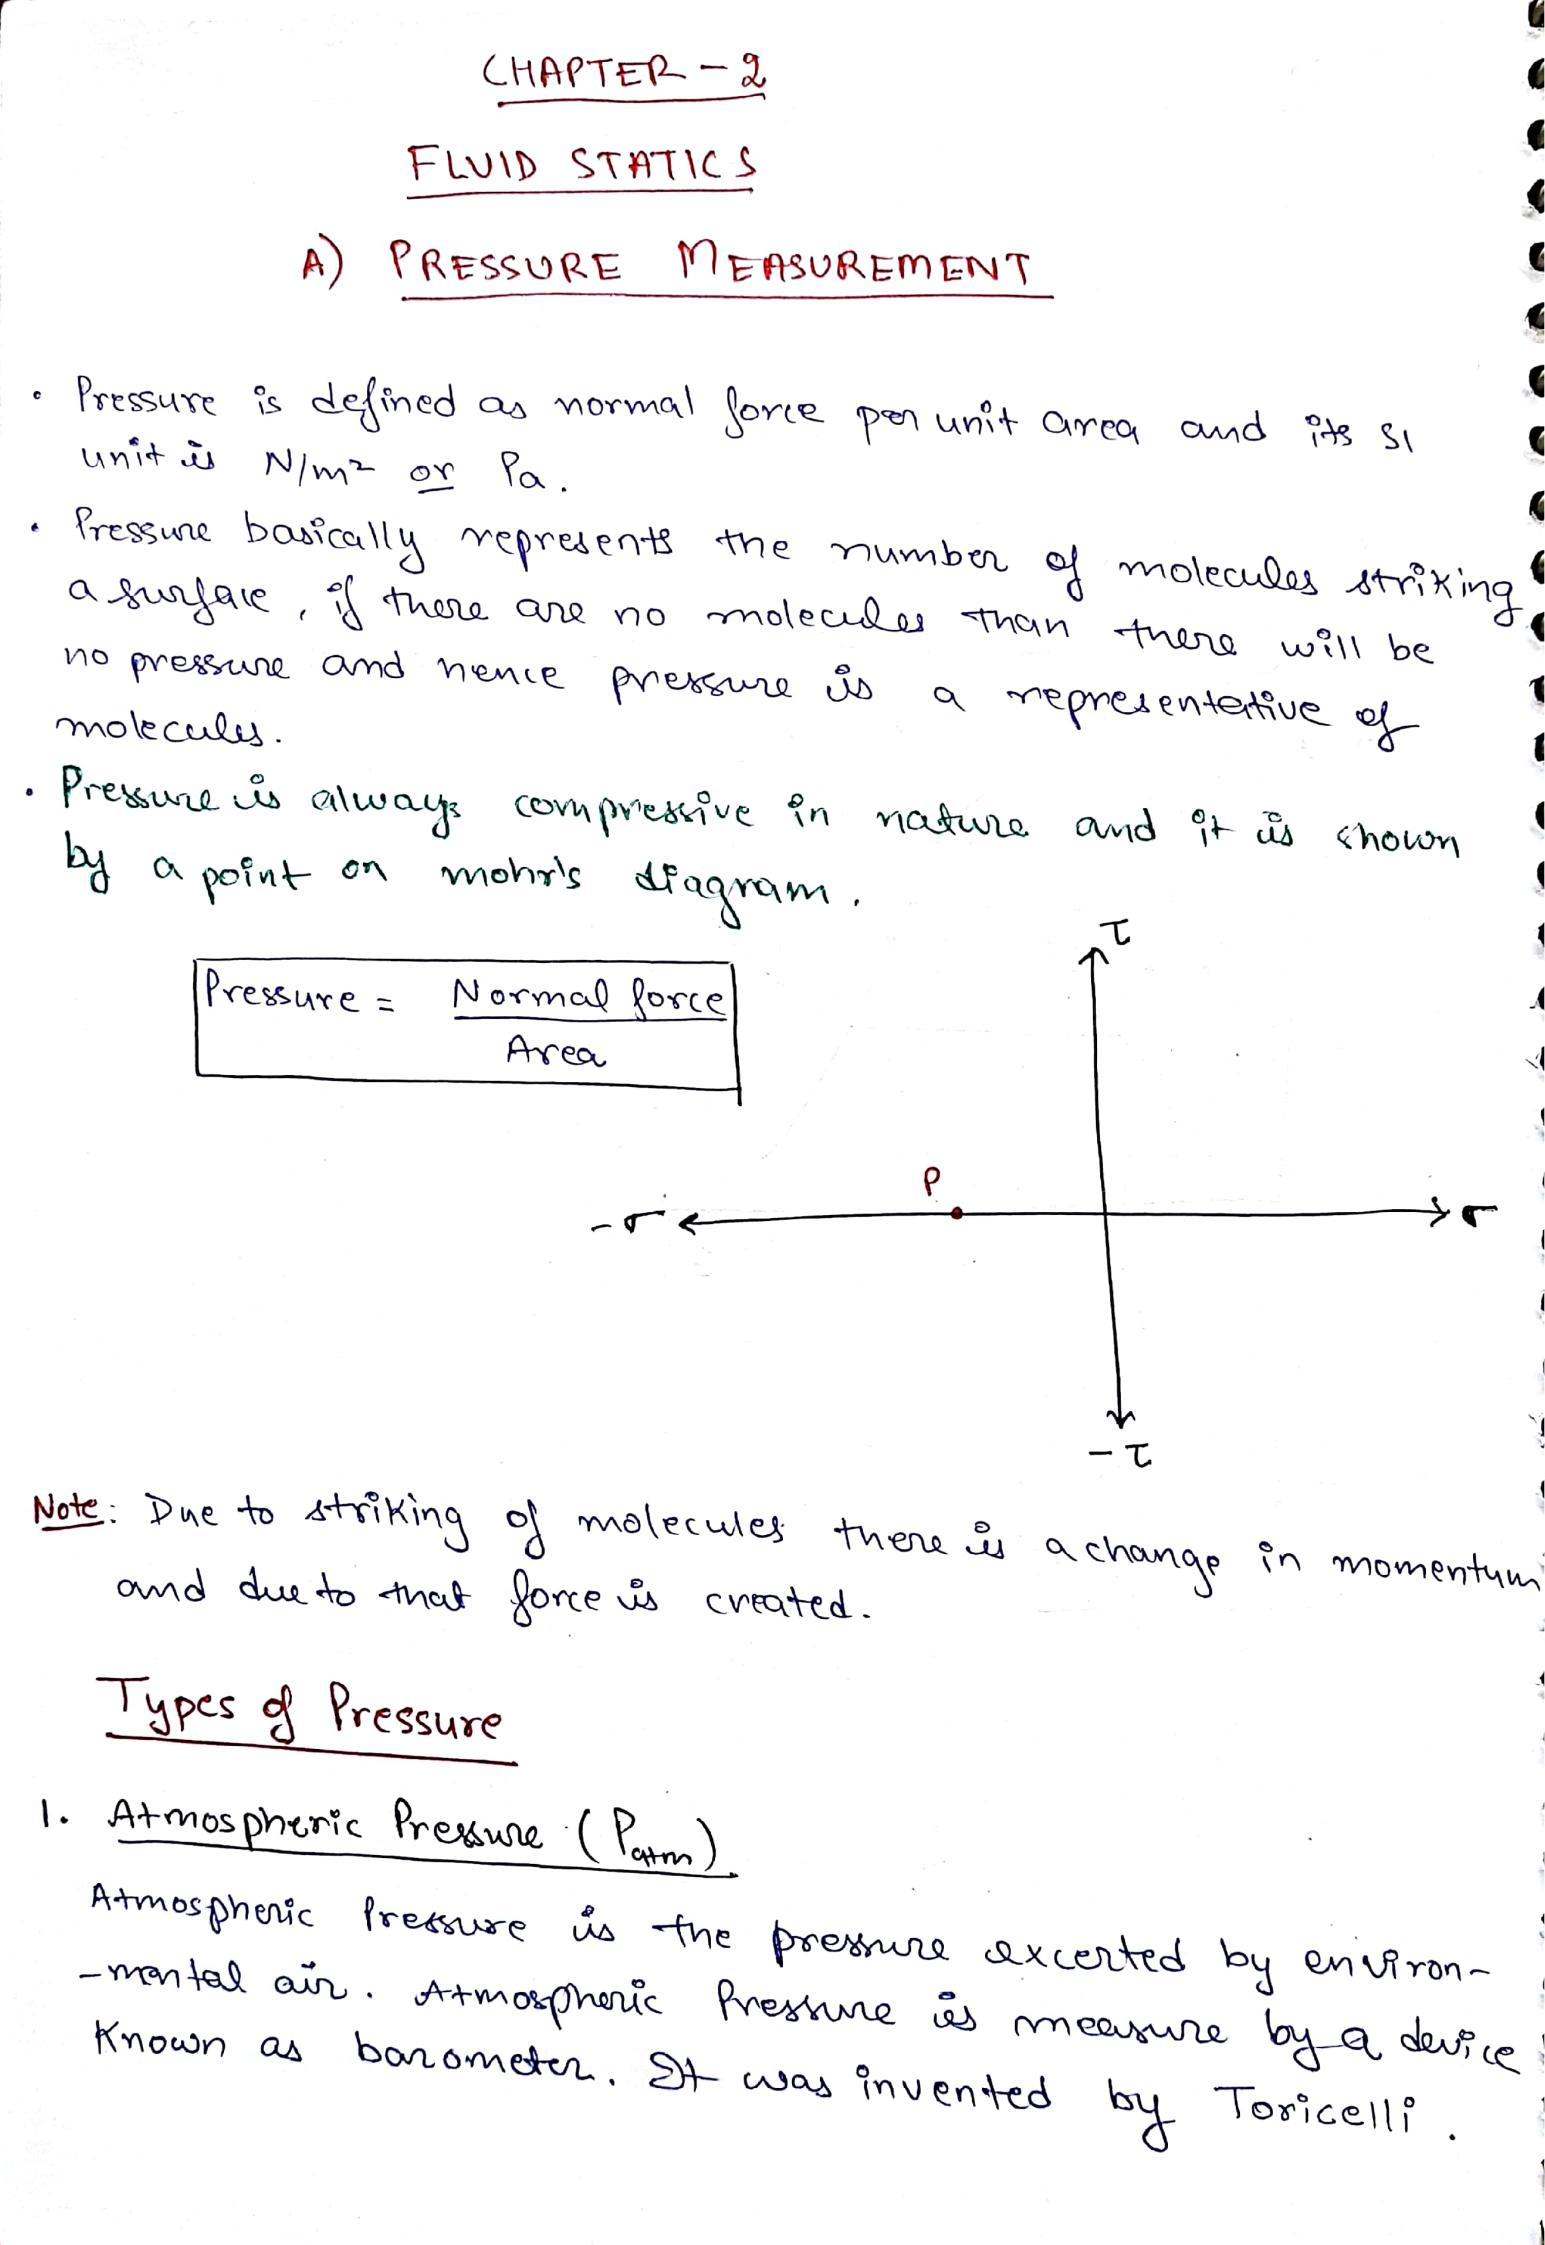 CHAPTER - 2
FLUID STATICS
A) PRESSURE MEASUREMENT
• Pressure is defined as normal force per unit area and its SI
unit is N/m² or Pa.
• Pressure basically represents the number of molecules striking
a surface, if there are no molecules than there will be
no pressure and hence pressure is a representative of
molecules.
• Pressure is always compressive in nature and it is shown
by a point on mohr's diagram.
Pressure = Normal force
Area
τ
P
-σ
σ
-τ
Note: Due to striking of molecules there is a change in momentum
and due to that force is created.
Types of Pressure
1. Atmospheric Pressure (Patm)
Atmospheric Pressure is the pressure excerted by environ-
-mental air. Atmospheric Pressure is measure by a device
Known as barometer. It was invented by Toricelli.